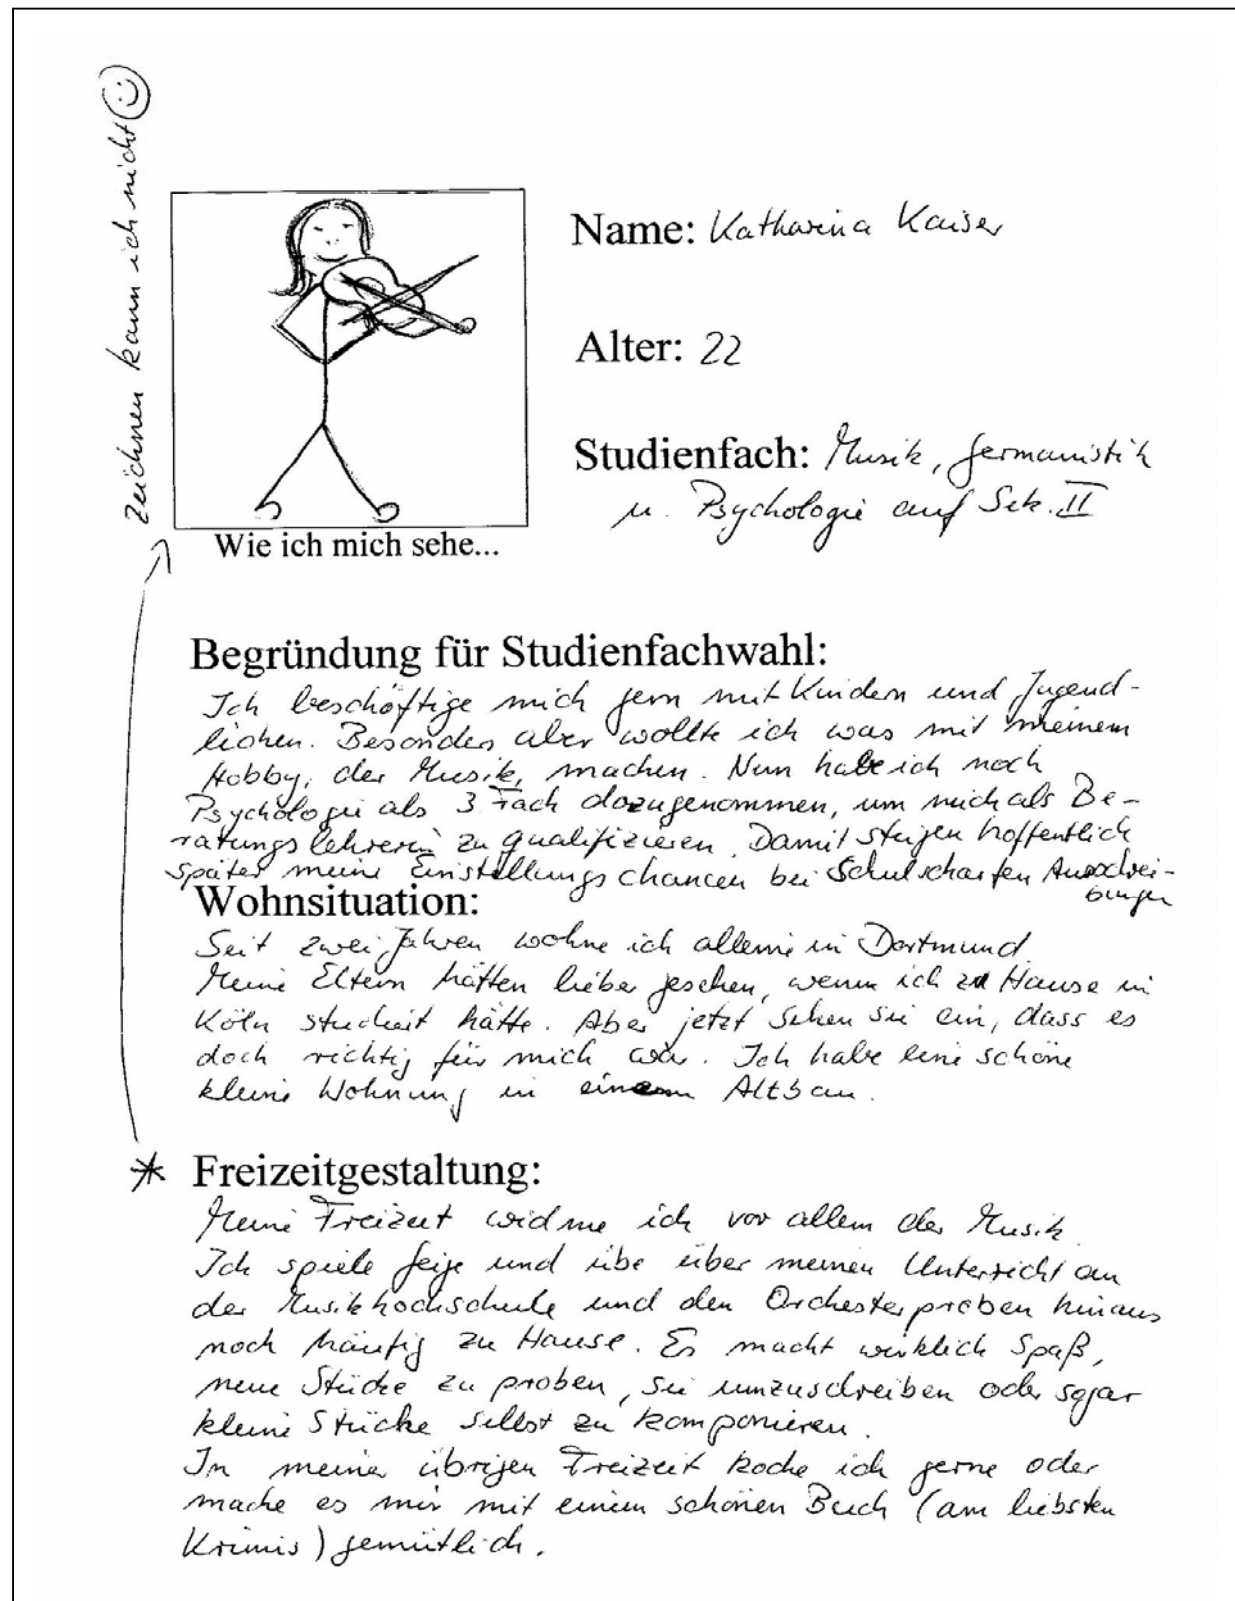 Zeichnen kann ich nicht
Name: Katharina Kaiser
Alter: 22
Studienfach: Musik, Germanistik
u. Psychologie auf Sek. II
Wie ich mich sehe...
Begründung für Studienfachwahl:
Ich beschäftige mich gern mit Kindern und Jugend-
lichen. Besonders aber wollte ich was mit meinem
Hobby, der Musik, machen. Nun habe ich noch
Psychologie als 3. Fach dazugenommen, um mich als Be-
ratungslehrerin zu qualifizieren. Damit steigen hoffentlich
später meine Einstellungschancen bei Schulscharfen Ausschrei-
bungen
Wohnsituation:
Seit zwei Jahren wohne ich alleine in Dortmund.
Meine Eltern hätten lieber gesehen, wenn ich zu Hause in
Köln studiert hätte. Aber jetzt sehen sie ein, dass es
doch richtig für mich war. Ich habe eine schöne
kleine Wohnung in einem Altbau.
* Freizeitgestaltung:
Meine Freizeit widme ich vor allem der Musik.
Ich spiele Geige und übe über meinen Unterricht an
der Musikhochschule und den Orchesterproben hinaus
noch häufig zu Hause. Es macht wirklich Spaß,
neue Stücke zu proben, sie umzuschreiben oder sogar
kleine Stücke selbst zu komponieren.
In meiner übrigen Freizeit koche ich gerne oder
mache es mir mit einem schönen Buch (am liebsten
Krimis) gemütlich.